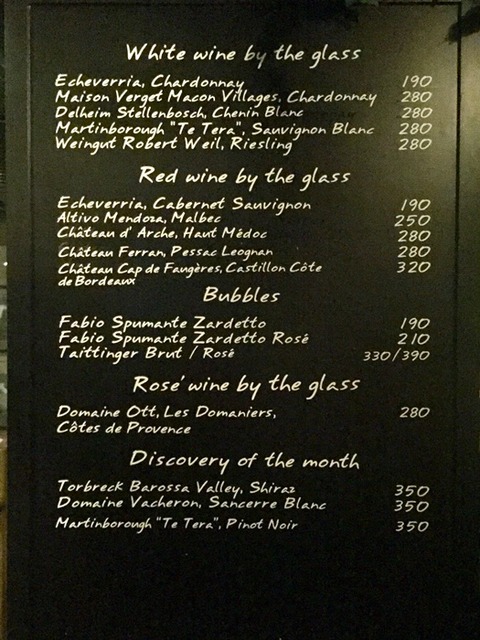 White wine by the glass
Echeverria, Chardonnay 190
Maison Verget Macon Villages, Chardonnay 280
Delheim Stellenbosch, Chenin Blanc 280
Martinborough "Te Tera", Sauvignon Blanc 280
Weingut Robert Weil, Riesling 280
Red wine by the glass
Echeverria, Cabernet Sauvignon 190
Altivo Mendoza, Malbec 250
Château d' Arche, Haut Médoc 280
Château Ferran, Pessac Leognan 280
Château Cap de Faugères, Castillon Côte 320
de Bordeaux
Bubbles
Fabio Spumante Zardetto 190
Fabio Spumante Zardetto Rosé 210
Taittinger Brut / Rosé 330/390
Rosé wine by the glass
Domaine Ott, Les Domaniers, 280
Côtes de Provence
Discovery of the month
Torbreck Barossa Valley, Shiraz 350
Domaine Vacheron, Sancerre Blanc 350
Martinborough "Te Tera", Pinot Noir 350